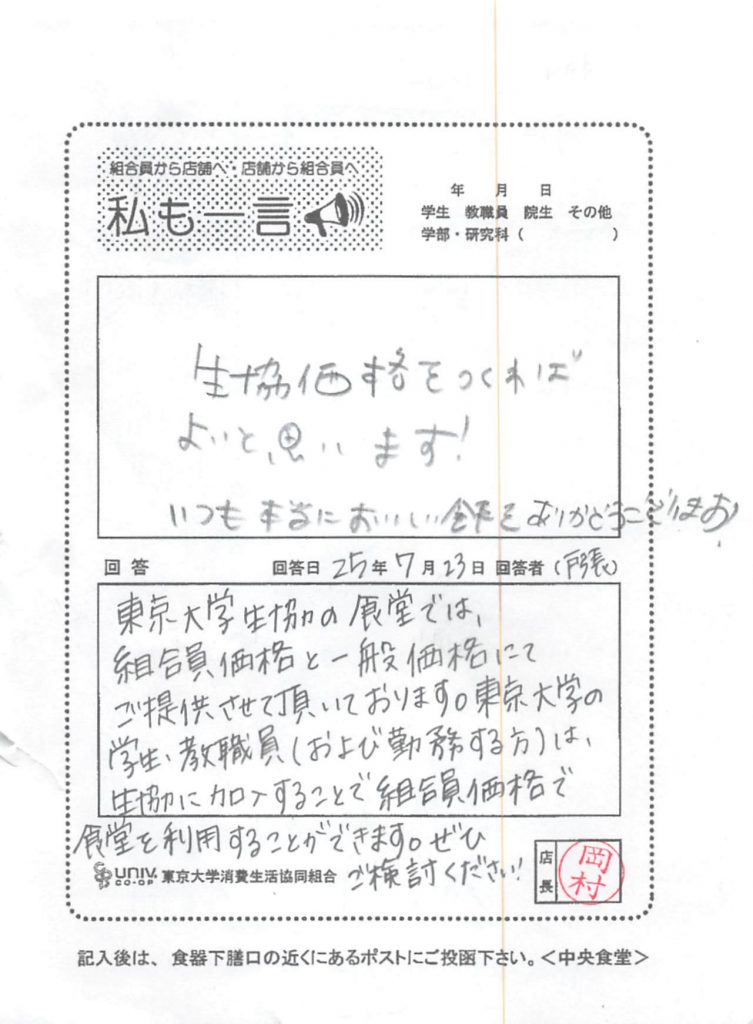 組合員から店舗へ・店舗から組合員へ
私も一言
年 月 日
学生 教職員 院生 その他
学部・研究科( )
生協価格をつくれば
よいと思います!
いつも本当においしい飯をありがとうございます
回答 回答日 25年7月23日 回答者(戸張)
東京大学生協の食堂では、
組合員価格と一般価格にて
ご提供させて頂いております。東京大学の
学生、教職員(および勤務する方)は、
生協に加入することで組合員価格で
食堂を利用することができます。ぜひ
ご検討ください!
UNIV. CO-OP 東京大学消費生活協同組合
店長 岡村
記入後は、食器下膳口の近くにあるポストにご投函下さい。<中央食堂>